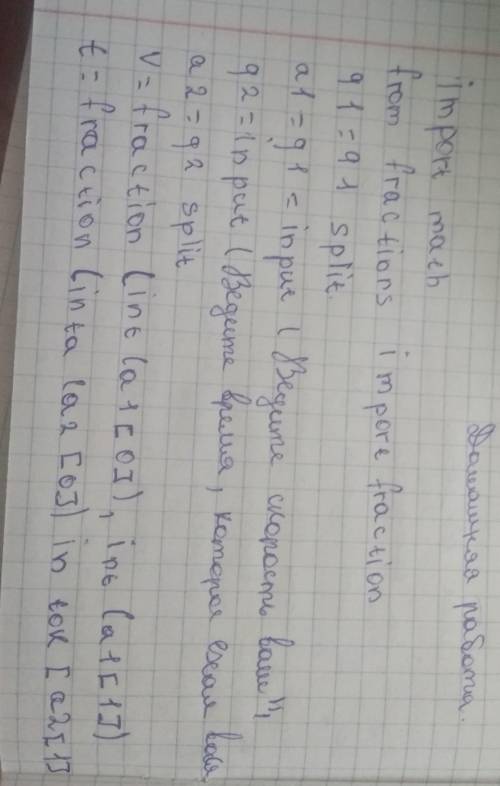 Домашняя работа.
import math
from fractions import fraction
g1 = g1 split.
a1 = g1 = input ( Ведите скорость ваше",
g2 = input ( Ведите время, которое ехал вася
a2 = g2 split
V = fraction (int (a1 [0]), int (a1 [1])
t = fraction (inta (a2 [0]) in tok [a2[1]